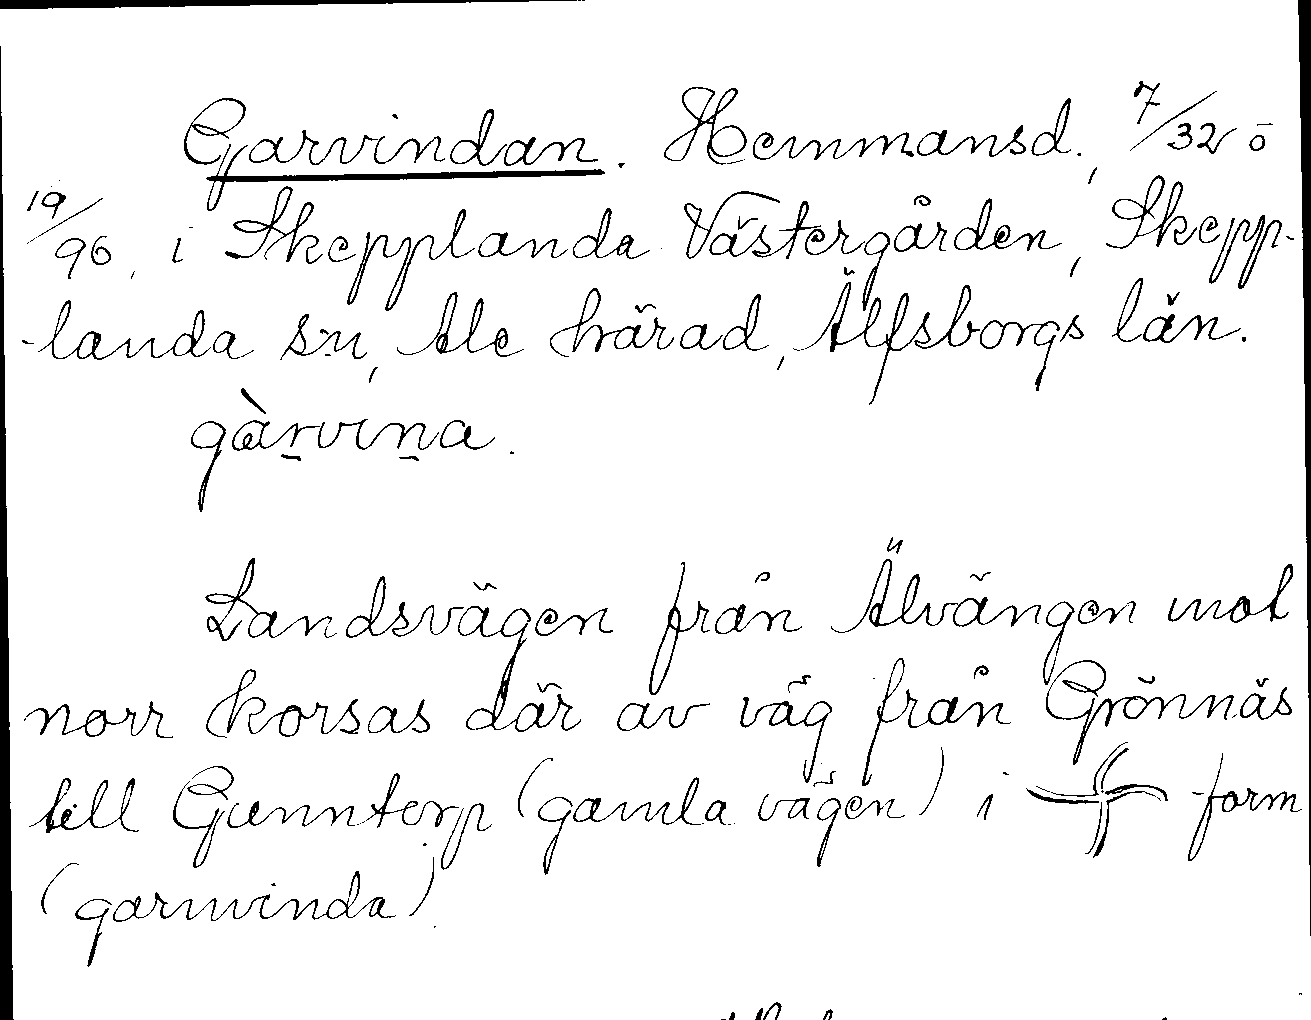 Garvindan. Hemmansd., 7/32 ō
19/96, i Skepplanda Västergården, Skepp-
-landa sn, Ale härad, Älfsborgs län.
gàrvina.
Landsvägen från Älvängen mot
norr korsas där av väg från Grönnäs
till Gunntorp (gamla vägen) i -form
(garnvinda)